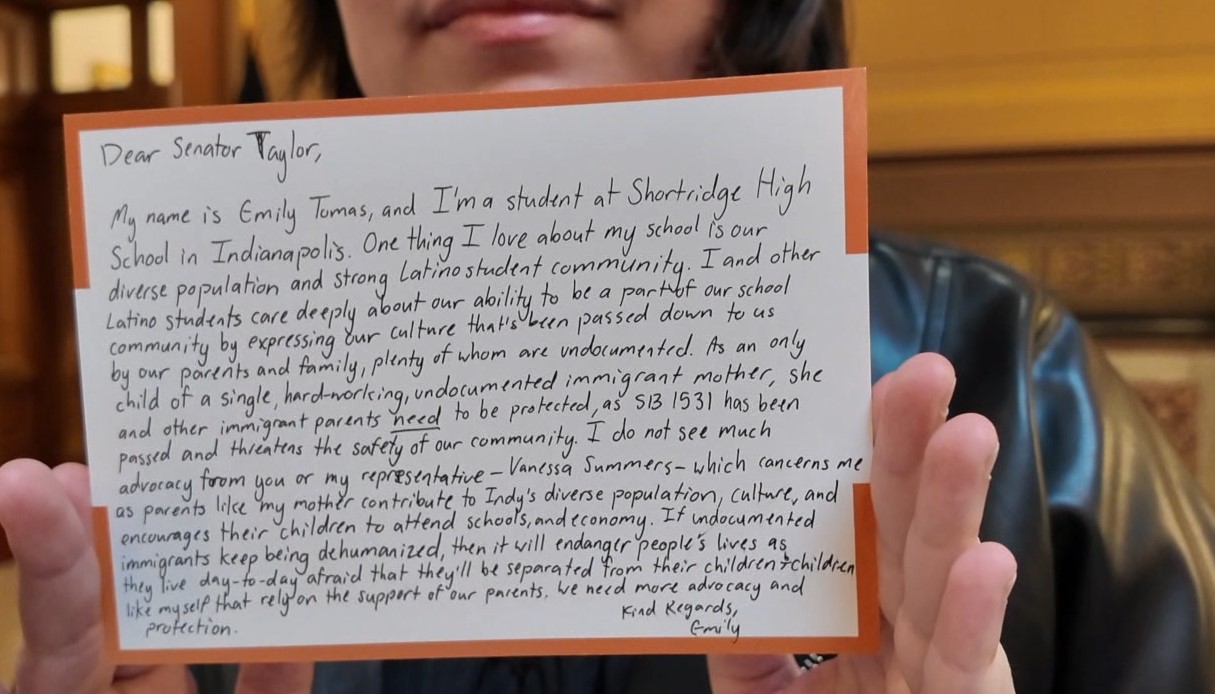 Dear Senator Taylor,
My name is Emily Tomas, and I'm a student at Shortridge High
School in Indianapolis. One thing I love about my school is our
diverse population and strong Latino student community. I and other
Latino students care deeply about our ability to be a part of our school
community by expressing our culture that's been passed down to us
by our parents and family, plenty of whom are undocumented. As an only
child of a single, hard-working, undocumented immigrant mother, she
and other immigrant parents need to be protected, as SB 1531 has been
passed and threatens the safety of our community. I do not see much
advocacy from you or my representative - Vanessa Summers - which concerns me
as parents like my mother contribute to Indy's diverse population, culture, and
encourages their children to attend schools, and economy. If undocumented
immigrants keep being dehumanized, then it will endanger people's lives as
they live day-to-day afraid that they'll be separated from their children + children
like myself that rely on the support of our parents. We need more advocacy and
protection.
Kind Regards,
Emily